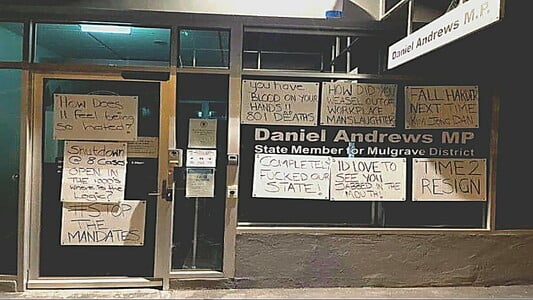 Daniel Andrews M.P.
How Does
It feel being
so hated?
Shutdown
@ 8 Case
OPEN
IN THE
Where is the
Logic?
#STOP
THE
MANDATES
You have
BLOOD ON YOUR
HANDS!!
801 DEATHS
HOW DID YOU
WEASEL OUT OF
WORKPLACE
MANSLAUGHTER
FALL HARDER
NEXT TIME
DAN
Daniel Andrews MP
State Member for Mulgrave District
COMPLETELY
FUCKED OUR
STATE!
ID LOVE TO
SEE YOU
JABBED IN THE
MOUTH!
TIME 2
RESIGN